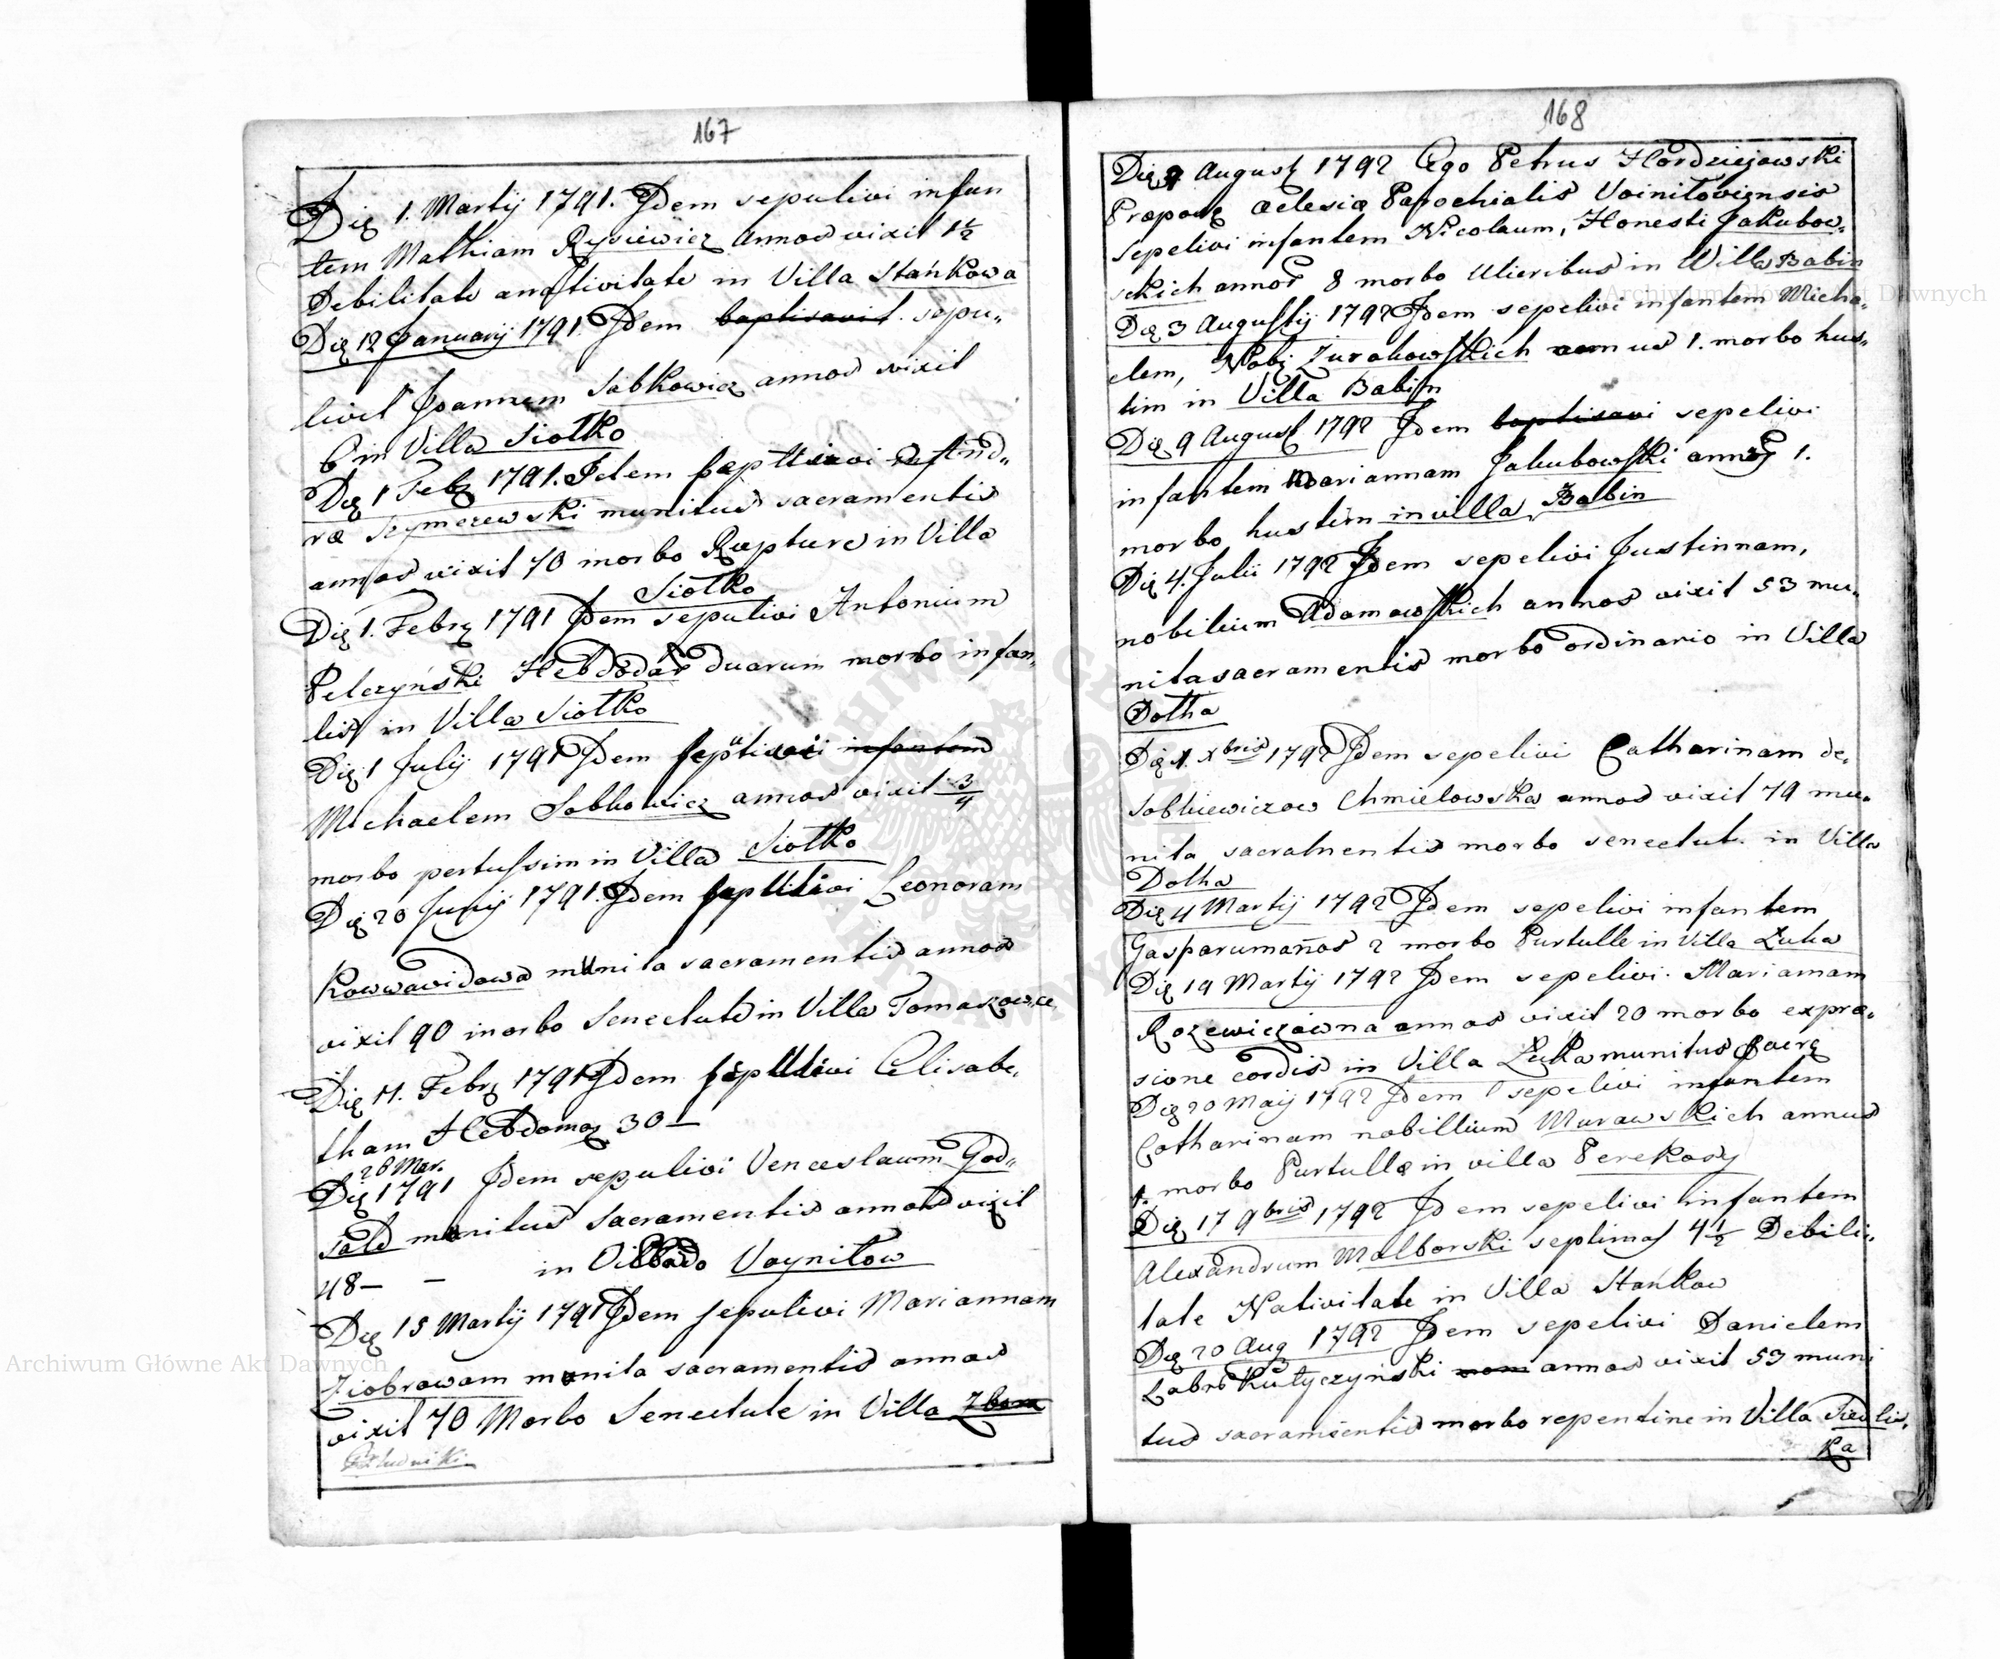 167
Die 1. Martij 1791. Jdem sepulivi infan
tem Mathiam Rysiewicz annos vixit 1½
Debilitate anativitate in Villa Stańkowa
Die 12 Januarij 1791. Jdem baptisavit sepu„
livit Joannem Sabkowicz annos vixit
6 in Villa Siolko
Die 1 Febr 1791. Jdem And„
ræ Szymczewski munitus sacramentis
annos vixit 70 morbo Rupture in Villa
Siolko
Die 1. Febr 1791 Jdem sepulivi Antonium
Pelczyński Hebdodar duarum morbo infan„
lis in Villa Siolko
Die 1 Julij 1791 Jdem infantem
Michaelem Sobkowicz annos vixit 3/4
morbo pertussim in Villa Siolko
Die 20 Junij 1791. Jdem Leonoram
Kowwawidowa munita sacramentis annos
vixit 90 morbo Senectute in Villa Tomaszowce
Die 11. Febr 1791 Jdem Elisabe„
tham Hebdomas 30 —
28 Mar.
Die 1791 Jdem sepulivi Venceslaum God„
munitus Sacramentis annos vixit
48 — — in Voynilow
Die 15 Martij 1791 Jdem sepulivi Mariannam
Ziobrowam munita sacramentis annos
vixit 70 Morbo Senectute in Villa
168
Die August 1792 Ego Petrus Hordziejowski
Præpos æclesiæ Parochialis Voiniloviensis
sepelivi infantem Nicolaum, Honesti Jakubow„
skich annos 8 morbo in Villa Babin
Die 3 Augustij 1792 Jdem sepelivi infantem Micha„
elem, Nobi Zurakowskich annus 1. morbo hus„
tim in Villa Babin
Die 9 August 1792 Jdem baptisavi sepelivi
infantem Mariannam Jakubowski annos 1.
morbo hustim in villa Babin
Die 4. Julii 1792 Jdem sepelivi Justinnam,
nobilium Adamowskich annos vixit 53 mu„
nita sacramentis morbo ordinario in Villa
Dolha
Die 1. Xbris 1792 Jdem sepelivi Catharinam de„
Sobkiewiczow Chmielowska annos vixit 79 mu„
nita sacramentis morbo senectut. in Villa
Dolha
Die 4 Martij 1792 Jdem sepelivi infantem
Gasparum años 2 morbo Purtulle in Villa Luka
Die 19 Martij 1792 Jdem sepelivi. Mariamam
Rozewiczowna annos vixit 20 morbo expræ„
sione cordis in Villa Luka munitus sacre
Die 20 Maij 1792 Jdem sepelivi infantem
Catharinam nobillium Murawskich annus
1. morbo Purtulla in villa Perekosy
Die 17 9bris 1792 Jdem sepelivi infantem
Alexandrum Malborski septimas 4½ Debili„
tate Nativitate in Villa Stańkow
Die 20 Aug 1792 Jdem sepelivi Danielem
annos vixit 53 muni
tus sacramentis morbo repentine in Villa Siedlis„
ka
Archiwum Główne Akt Dawnych
Archiwum Główne Akt Dawnych